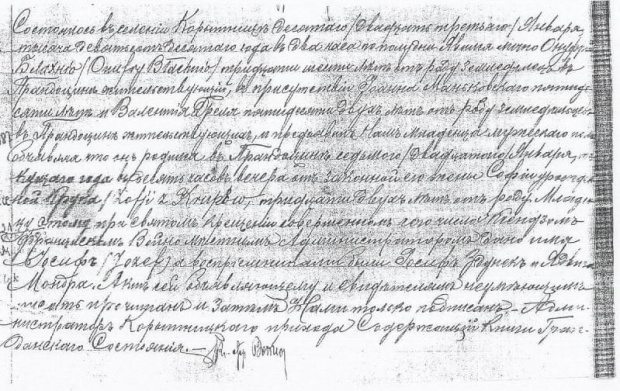 Состоялось въ селеніи Корытница десятаго /двадцать третьяго/ Января
тысяча девятьсотъ десятаго года въ два часа по полудни. Явился лично Онуфрій
Блахню /Onufry Błachnio/ тридцати шести лѣтъ отъ роду земледѣлецъ въ
жительствующій, въ присутствіи пятиде-
сяти лѣтъ и Валентія пятидесяти двухъ лѣтъ отъ роду земледѣльцевъ
въ жительствующихъ, и предъявилъ Намъ младенца мужескаго пола
объявляя что онъ родился въ седьмого /двадцатаго/ Января
текущаго года въ часовъ вечера отъ законной его жены Софіи урожден-
ной Крупа /Zofji z Krupów/ тридцати двухъ лѣтъ отъ роду. Младен-
цу этому при святомъ крещеніи совершенномъ сего числа Ксендзомъ
Францишкомъ мѣстнымъ Администраторомъ дано имя
Іосифъ /Józef/ а воспріемниками были и
Актъ сей объявляющему и свидѣтелямъ неумѣющимъ
писать прочитанъ и затѣмъ Нами только подписанъ. – Адми-
нистраторъ Корытницкаго прихода Содержащій Книги Граж-
данскаго Состоянія.